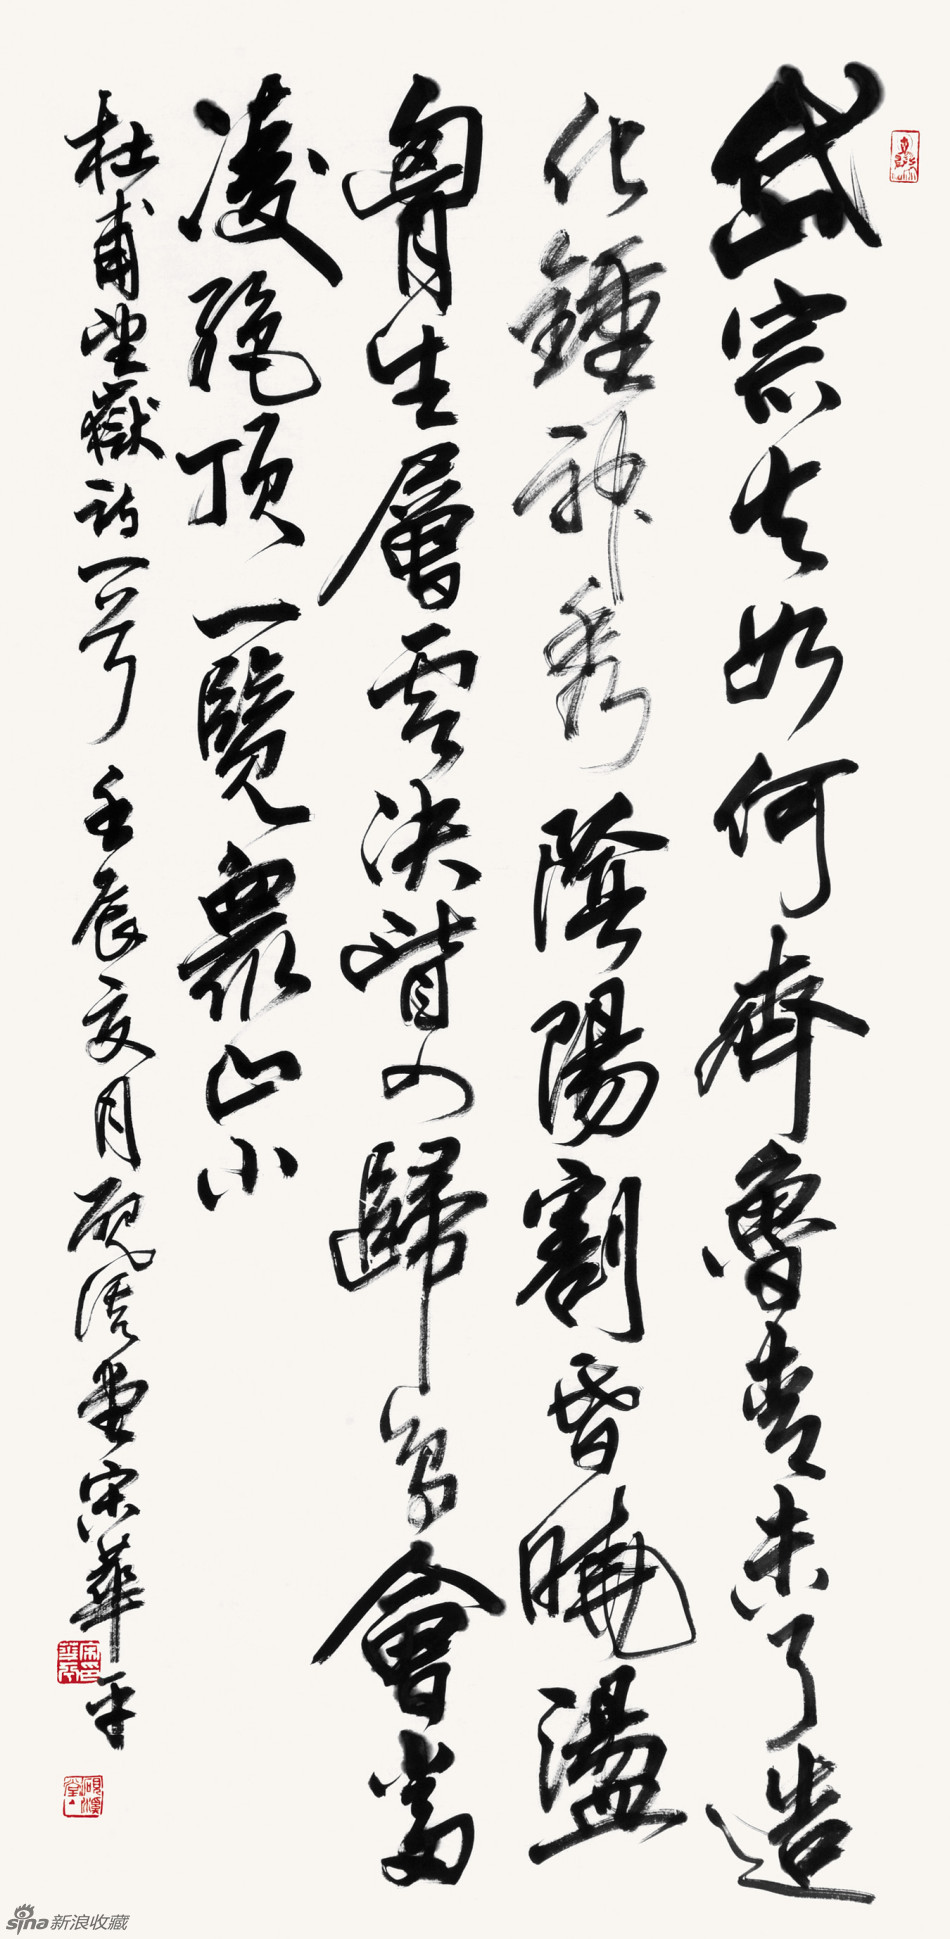 岱宗夫如何齊魯青未了造
化鍾神秀陰陽割昏曉盪
胷生層雲決眥入歸鳥會當
凌絶頂一覽衆山小
杜甫望嶽詩一首 壬辰夏月硯堂宋華平
sina新浪收藏